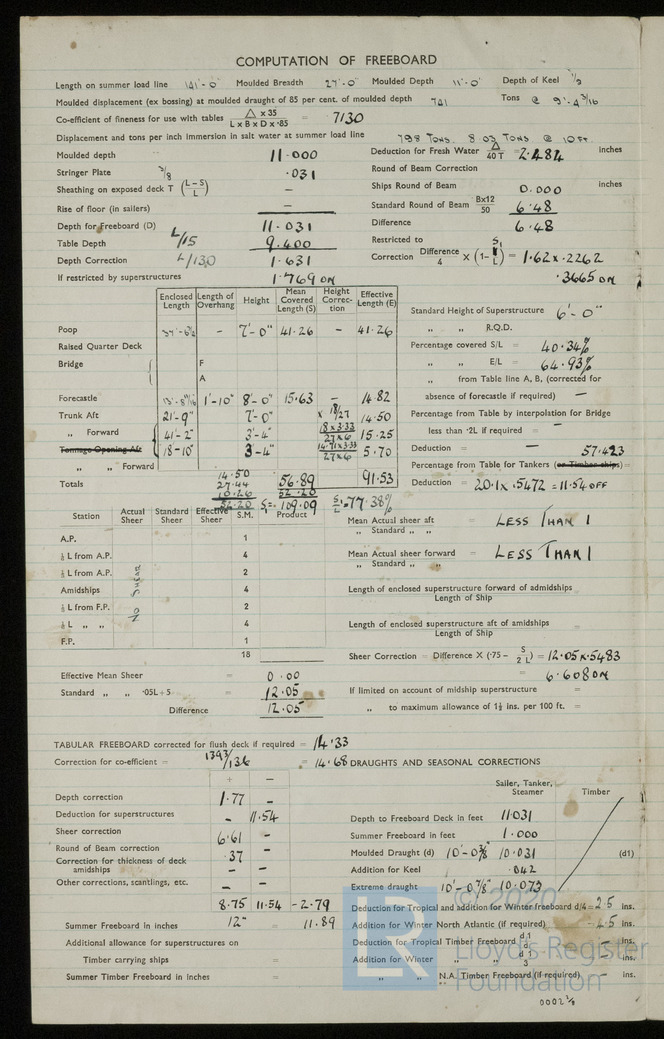 COMPUTATION OF FREEBOARD
Length on summer load line 141'-0" Moulded Breadth 27'-0" Moulded Depth 11'-0" Depth of Keel 1/2
Moulded displacement (ex bossing) at moulded draught of 85 per cent. of moulded depth 741 Tons @ 9'-4 3/16
Co-efficient of fineness for use with tables △ x 35 / L x B x D x ·85 = ·7130
Displacement and tons per inch immersion in salt water at summer load line 798 Tons. 8.03 Tons @ 10 Ft.
Moulded depth 11.000
Deduction for Fresh Water △ / 40 T = 2.484 inches
Stringer Plate 3/8 .031
Round of Beam Correction
Sheathing on exposed deck T (L-S / L) —
Ships Round of Beam 0.000 inches
Rise of floor (in sailers) —
Standard Round of Beam Bx12 / 50 6.48
Depth for Freeboard (D) 11.031
Difference 6.48
Table Depth L/15 9.400
Restricted to
Depth Correction L/130 1.631
Correction Difference / 4 X (1- S1 / L) = 1.62 x .2262
If restricted by superstructures 1.769 ON
.3665 ON
Enclosed Length Length of Overhang Height Mean Covered Length (S) Height Correc-tion Effective Length (E)
Standard Height of Superstructure 6'-0"
Poop — 7'-0" 41.26 — 41.26
" " R.Q.D.
Raised Quarter Deck
Percentage covered S/L = 40.34%
Bridge F
" " E/L = 64.93%
A
" from Table line A, B, (corrected for
Forecastle 1'-10" 8'-0" 15.63 — 14.82
absence of forecastle if required) —
Trunk Aft 21'-9" 7'-0" x 18/27 14.50
Percentage from Table by interpolation for Bridge
" Forward 41'-2" 3'-4" 18x3.33 / 27x6 15.25
less than ·2L if required = —
Tonnage Opening Aft 18'-10" 3'-4" 14.71x3.33 / 27x6 5.70
Deduction = — 57.423
" " Forward
Percentage from Table for Tankers (or Timber ships) =
Totals 14.50 27.44 52.20 56.89 52.20 S1= 109.09 91.53 S1/L = 77.38%
Deduction = 20.1 x .5472 = 11.54 OFF
Station Actual Sheer Standard Sheer Effective Sheer S.M. Product
Mean Actual sheer aft / " Standard " " = LESS THAN 1
A.P. 1
⅙ L from A.P. 4
Mean Actual sheer forward / " Standard " " = LESS THAN 1
⅓ L from A.P. 2
Amidships 4
Length of enclosed superstructure forward of admidships / Length of Ship =
⅓ L from F.P. 2
⅙ L " " 4
Length of enclosed superstructure aft of amidships / Length of Ship =
F.P. 1
No Sheer
18
Sheer Correction = Difference X (·75 - S / 2 L) = 12.05 x .5483
Effective Mean Sheer = 0.00
= 6.608 ON
Standard " " ·05L+5 = 12.05
If limited on account of midship superstructure =
Difference 12.05
" to maximum allowance of 1½ ins. per 100 ft. =
TABULAR FREEBOARD corrected for flush deck if required = 14.33
Correction for co-efficient = 1.393/1.36 = 14.68
DRAUGHTS AND SEASONAL CORRECTIONS
+ —
Sailer, Tanker, Steamer Timber
Depth correction 1.77
Depth to Freeboard Deck in feet 11.031
Deduction for superstructures — 11.54
Summer Freeboard in feet 1.000
Sheer correction 6.61 —
Moulded Draught (d) 10'-0 3/8 10.031 (d1)
Round of Beam correction .37 —
Addition for Keel .042
Correction for thickness of deck amidships — —
Extreme draught 10'-0 7/8" 10.073
Other corrections, scantlings, etc. — —
Deduction for Tropical and addition for Winter freeboard d/4 = 2.5 ins.
8.75 11.54 -2.79
Addition for Winter North Atlantic (if required) - 4.5 ins.
Summer Freeboard in inches 12" = 11.89
Deduction for Tropical Timber Freeboard d1 — ins.
Additional allowance for superstructures on
Timber carrying ships =
Addition for Winter " " d1 / 3 — ins.
Summer Timber Freeboard in inches =
" " N.A. Timber Freeboard (if required) — ins.
© 2020
LR
Lloyd's Register
Foundation